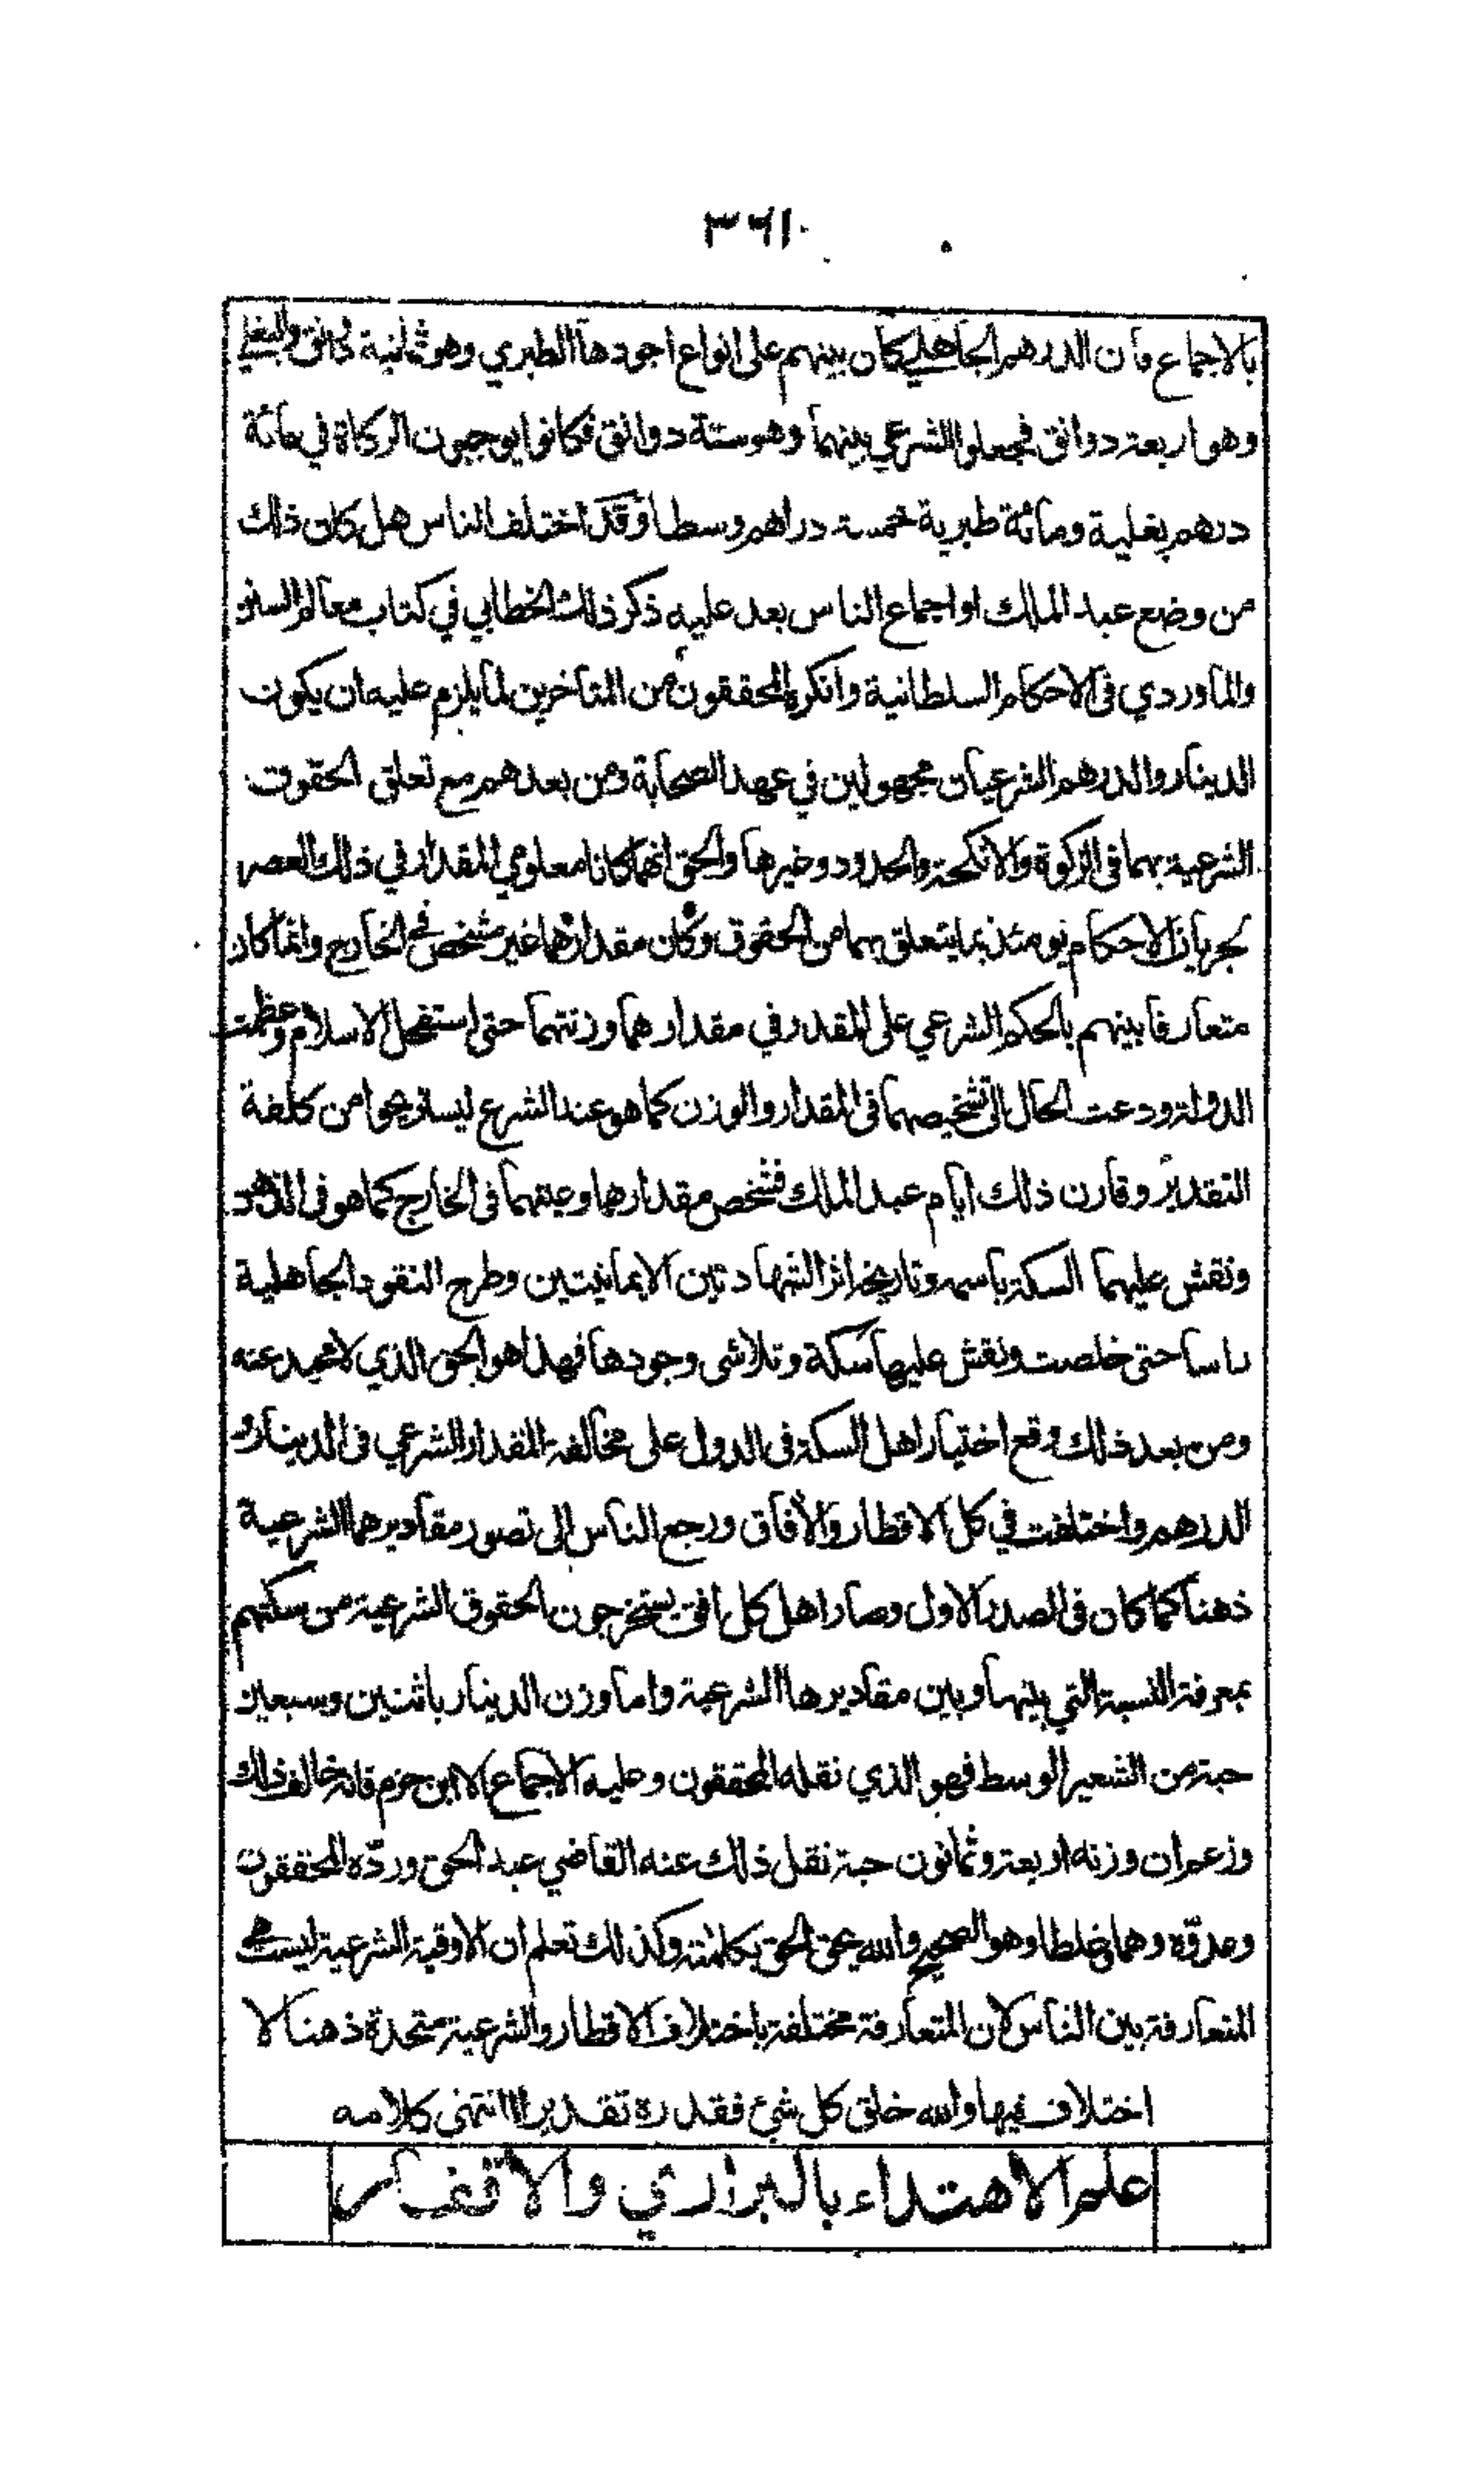 ٣٦١
بالاجماع فان الدرهم الجاهلي كان بينهم على انواع اجودها الطبري وهو ثمانية دوانق والبغلي
وهو اربعة دوانق فجعلوا الشرعي بينهما وهو ستة دوانق فكانوا يوجبون الزكاة في مائة
درهم بغلية ومائة طبرية خمسة دراهم وسطا وقد اختلف الناس هل كان ذلك
من وضع عبد الملك او اجماع الناس بعد عليه ذكر ذلك الخطابي في كتاب معالم السنن
والماوردي فى الاحكام السلطانية وانكره المحققون من المتاخرين لما يلزم عليه ان يكون
الدينار والدرهم الشرعيان مجهولين في عهد الصحابة ومن بعدهم مع تعلق الحقوق
الشرعية بهما فى الزكوة والانكحة والحدود وغيرها والحق انهما كانا معلومي المقدار في ذلك العصر
لجريان الاحكام يومئذ بما يتعلق بهما من الحقوق وكان مقدارهما غير مشخص فى الخارج وانما كان
متعارفا بينهم بالحكم الشرعي على المقدر في مقدارهما وزنتهما حتى استفحل الاسلام وعظمت
الدولة ودعت الحال الى تشخيصهما فى المقدار والوزن كما هو عند الشرع ليستريحوا من كلفة
التقدير وقارن ذلك ايام عبد الملك فشخص مقدارهما وعينهما فى الخارج كما هو فى الذهن
ونقش عليهما السكة باسمه وتاريخه اثر الشهادتين الايمانيتين وطرح النقود الجاهلية
راسا حتى خلصت ونقش عليها سكة وتلاشى وجودها فهذا هو الحق الذي لا محيد عنه
ومن بعد ذلك وقع اختيار اهل السكة فى الدول على مخالفة المقدار الشرعي فى الدينار و
الدرهم واختلفت في كل الاقطار والأفاق ورجع الناس الى تصور مقاديرهما الشرعية
ذهنا كما كان فى الصدر الاول وصار اهل كل افق يستخرجون الحقوق الشرعية من سكتهم
بمعرفة النسبة التي بينها وبين مقاديرها الشرعية واما وزن الدينار باثنين وسبعين
حبة من الشعير الوسط فهو الذي نقله المحققون وعليه الاجماع الا ابن حزم فانه خالف ذلك
وزعم ان وزنه اربعة وثمانون حبة نقل ذلك عنه القاضي عبد الحق وردّه المحققون
وعدّوه وهما وغلطا وهو الصحيح والله يحق الحق بكلماته وكذلك تعلم ان الاوقية الشرعية ليست هي
المتعارفة بين الناس لان المتعارفة مختلفة باختلاف الاقطار والشرعية متحدة ذهنا لا
اختلاف فيها والله خلق كل شئ فقدره تقديرا انتهى كلامه
علم الاهتداء بالبراري والاقفار